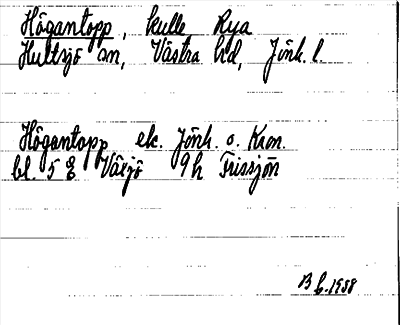 Högantopp, kulle Rya
Hultsjö sn, Västra hd, Jönk. l.
Högantopp ek. Jönk. o. Kron.
bl. 5 E Växjö 9h Frissjön
B 6. 1958